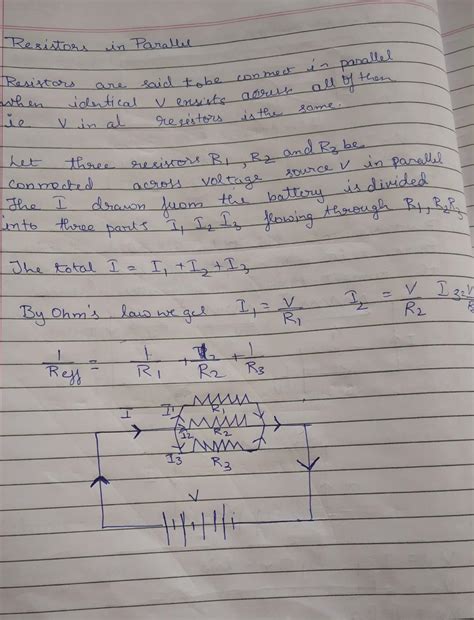 Resistors in Parallel
Resistors are said to be connect in parallel
when identical V exists across all of them
ie V in al resistors is the same.
Let three resistors R1, R2 and R3 be
connected across voltage source V in parallel
The I drawn from the battery is divided
into three parts I1 I2 I3 flowing through R1, R2 R3
The total I = I1 + I2 + I3
By Ohm's law we get I1 = V/R1 I2 = V/R2 I3 = V/
1/Reff = 1/R1 + 1/R2 + 1/R3
I I1 R1
I2 R2
I3 R3
V